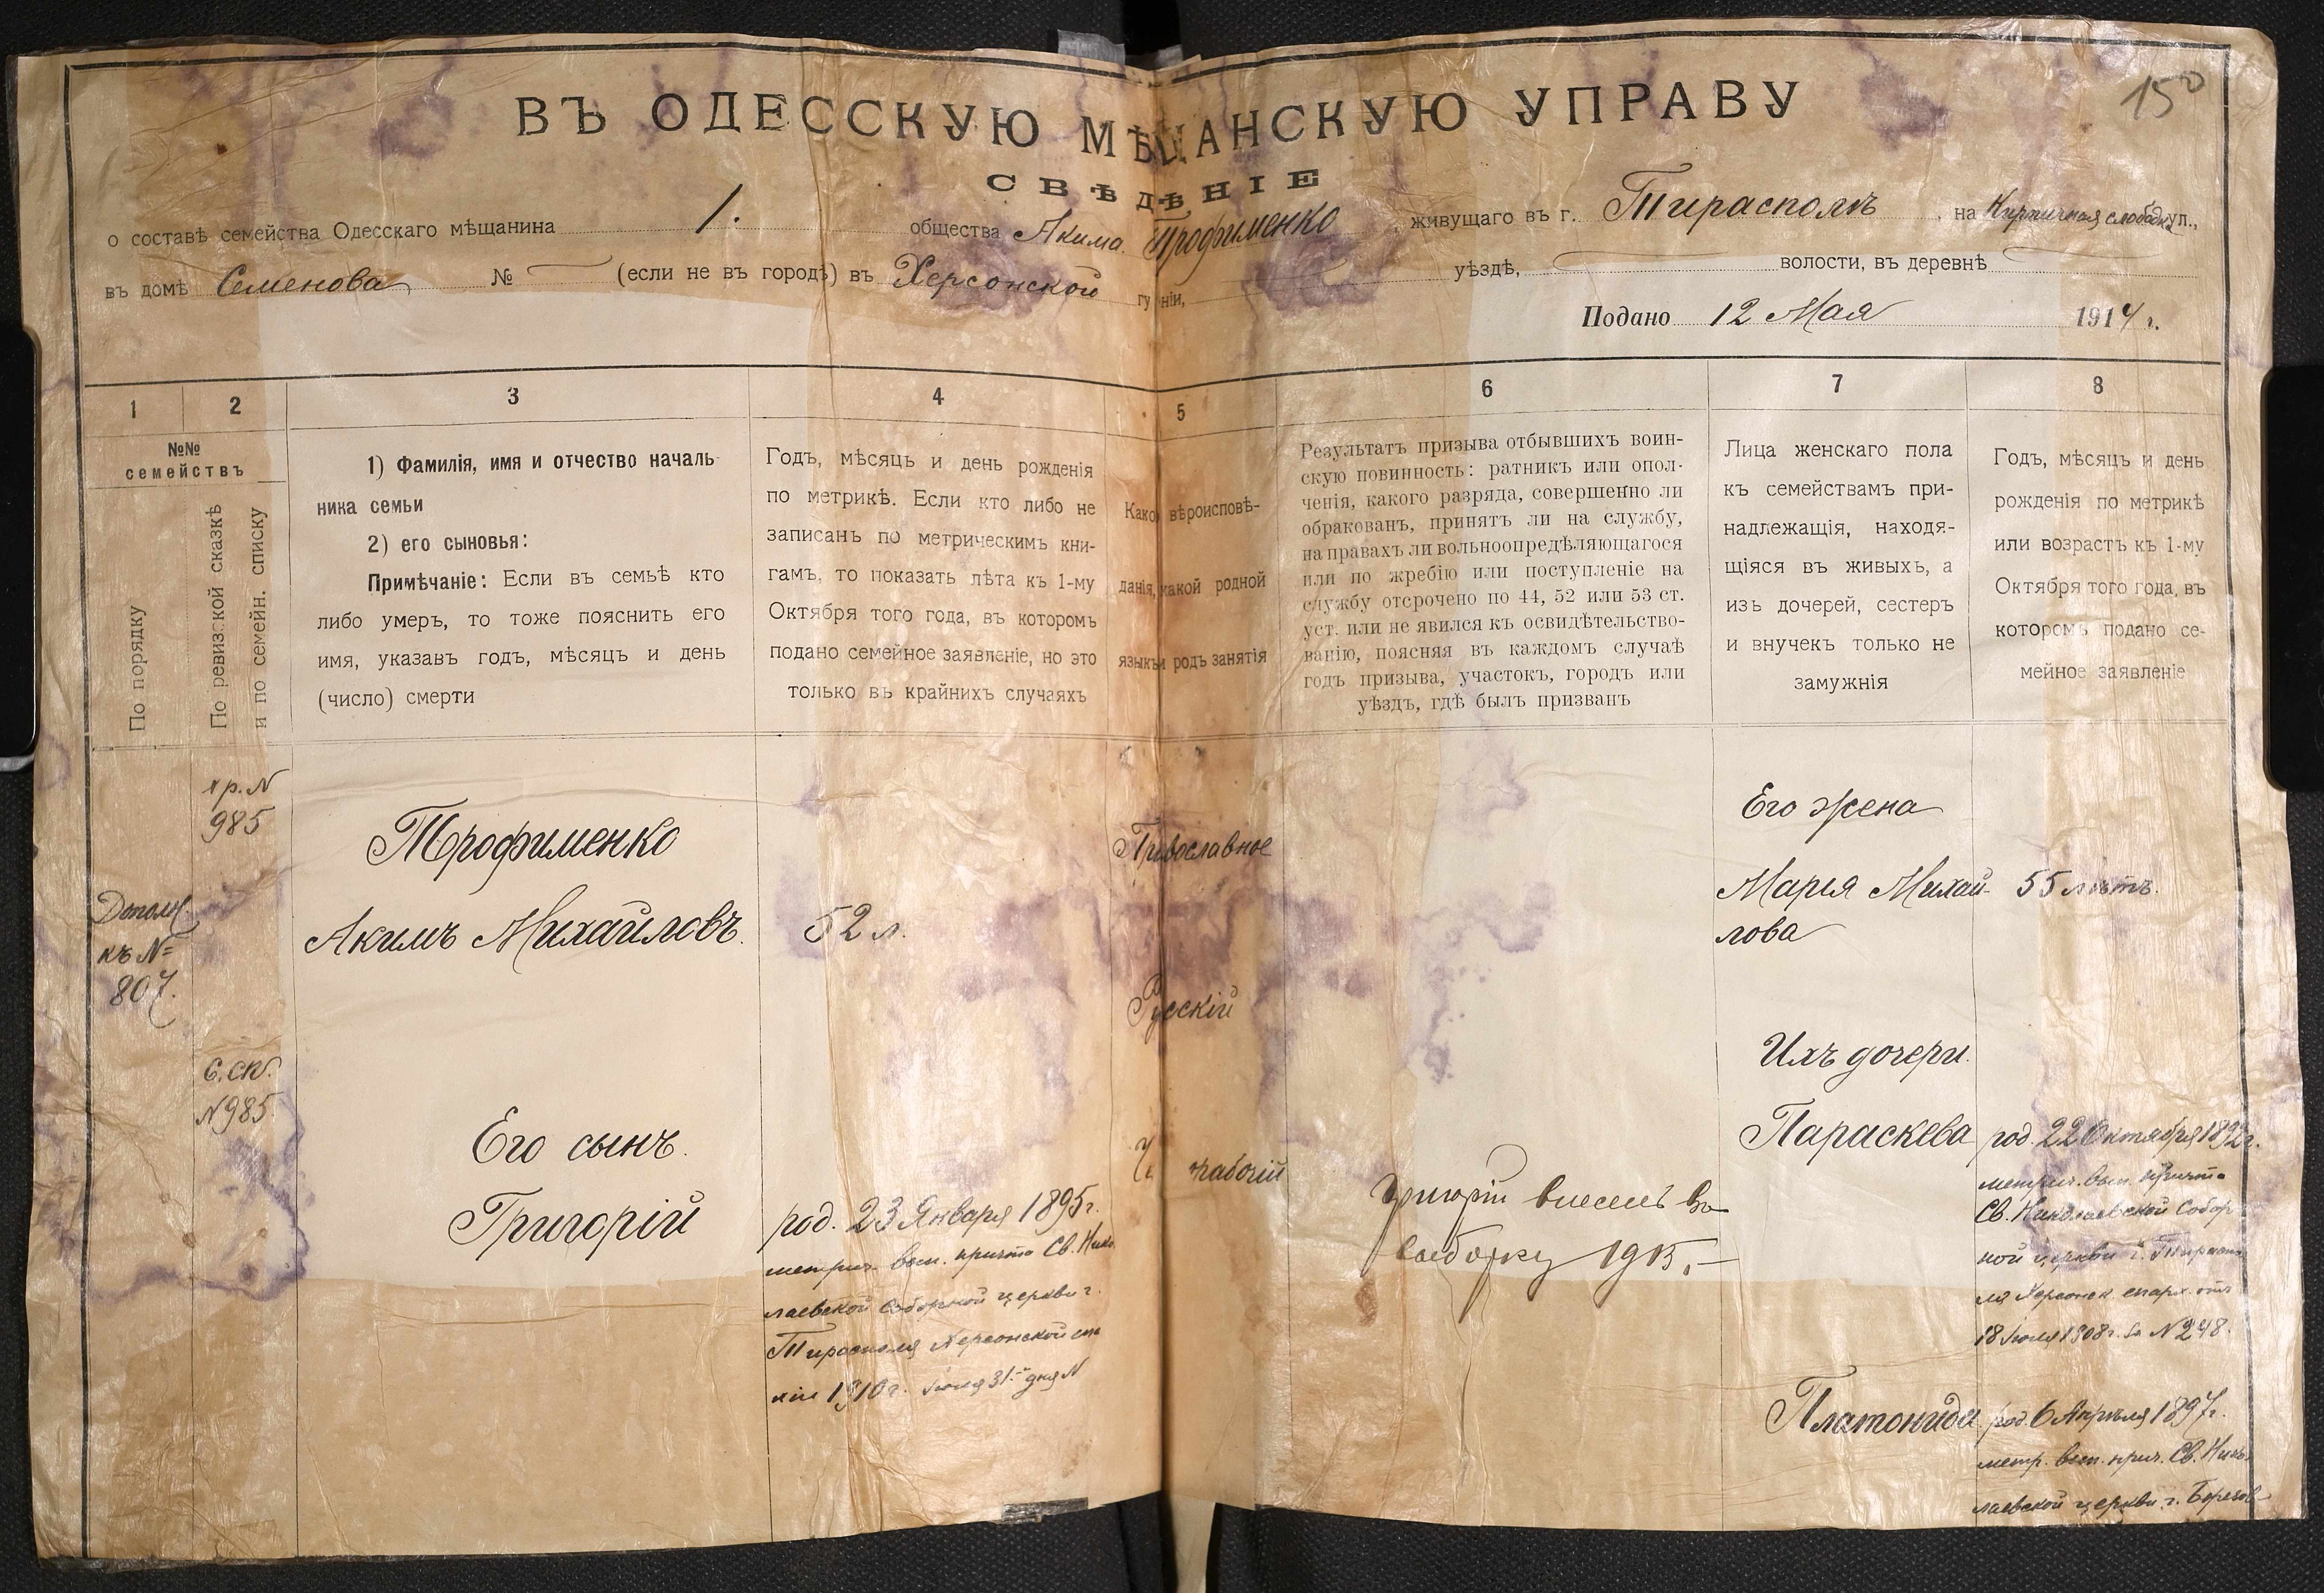 150
ВЪ ОДЕССКУЮ МѢЩАНСКУЮ УПРАВУ
СВѢДѢНІЕ
о составѣ семейства Одесскаго мѣщанина 1. общества Акима Трофименко, живущаго въ г. Тирасполь, на Кирпичная слободку ул.,
въ домѣ Семенова, № (если не въ городѣ) въ Херсонской гу ніи, уѣздѣ, волости, въ деревнѣ
Подано 12 Мая 1914 г.
1 2 3 4 5 6 7 8
№№
семействъ
По порядку
По ревизской сказкѣ
и по семейн. списку
1) Фамилія, имя и отчество началь-
ника семьи
2) его сыновья:
Примѣчаніе: Если въ семьѣ кто
либо умеръ, то тоже пояснить его
имя, указавъ годъ, мѣсяцъ и день
(число) смерти
Годъ, мѣсяцъ и день рожденія
по метрикѣ. Если кто либо не
записанъ по метрическимъ кни-
гамъ, то показать лѣта къ 1-му
Октября того года, въ которомъ
подано семейное заявленіе, но это
только въ крайнихъ случаяхъ
Како вѣроисповѣ-
данія, какой родной
языкъ и родъ занятія
Результатъ призыва отбывшихъ воин-
скую повинность: ратникъ или опол-
ченія, какого разряда, совершенно ли
обракованъ, принятъ ли на службу,
на правахъ ли вольноопредѣляющагося
или по жребію или поступленіе на
службу отсрочено по 44, 52 или 53 ст.
уст. или не явился къ освидѣтельство-
ванію, поясняя въ каждомъ случаѣ
годъ призыва, участокъ, городъ или
уѣздъ, гдѣ былъ призванъ
Лица женскаго пола
къ семействамъ при-
надлежащія, находя-
щіяся въ живыхъ, а
изъ дочерей, сестеръ
и внучекъ только не
замужнія
Годъ, мѣсяцъ и день
рожденія по метрикѣ
или возрастъ къ 1-му
Октября того года, въ
которомъ подано се-
мейное заявленіе
Дополн.
къ №
807.
пр. N
985
с. сп.
N 985
Трофименко
Акимъ Михайловъ.
Его сынъ.
Григорій
52 л.
род. 23 Января 1895 г.
метрич. вып. причта Св. Нико
лаевской Соборной церкви г.
Тирасполя Херсонской еп
хіи 1910 г. Іюля 31 дня N
Православное
Русскій
рабочій
Григорій внесенъ въ
выборку 1915,-
Его жена
Марія Михай-
лова
Ихъ дочери.
Параскева
Платонида
55 лѣтъ.
род. 22 Октября 1892 г.
метрич. вып. причта
Св. Николаевской Собор
ной церкви г. Тираспо
ля Херсонск. епарх. отъ
18 Іюля 1908 г. за N 248.
род. 6 Апрѣля 1897 г.
метр. вып. прич. Св. Нико
лаевской церкви г. Березов